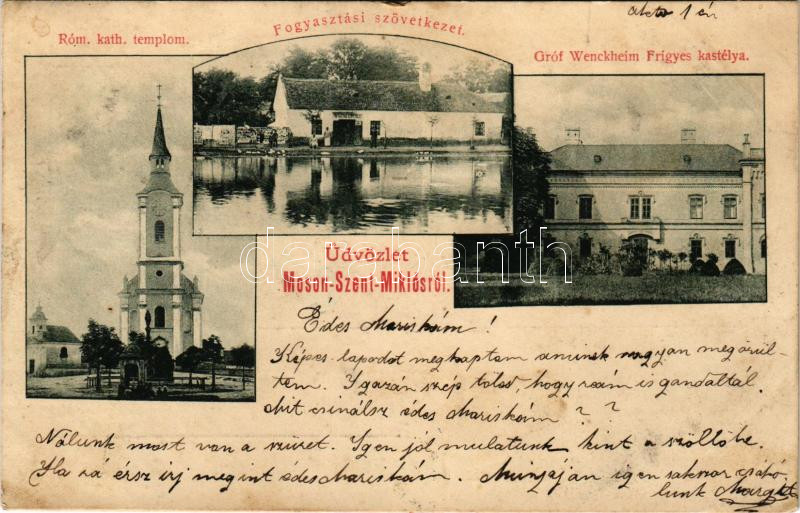 Róm. kath. templom.
Fogyasztási szövetkezet.
Gróf Wenckheim Frigyes kastélya.
Üdvözlet
Moson-Szent-Miklósról.
darabanth
Édes Mariskám!
Képes-lapodat megkaptam aminek nagyon megörül-
tem. Igazán szép tőled, hogy reám is gondoltál.
Mit csinálsz édes Mariskám??
Nálunk most van a szüret. Igen jól mulatunk kint a szöllőbe.
Ha rá érsz irj megint édes Mariskám. igen sokszor
lunk Margit